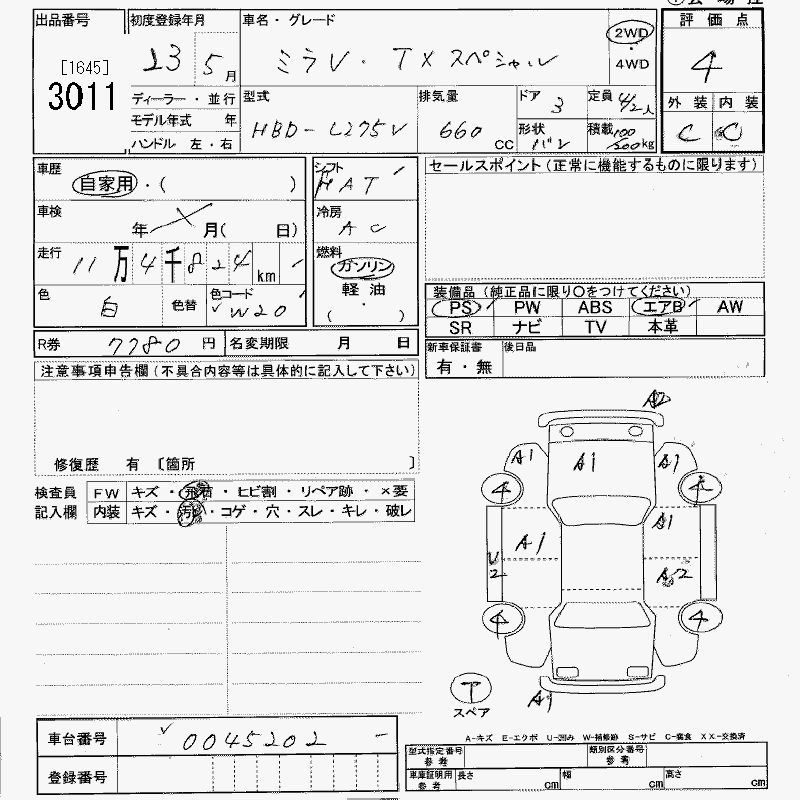 出品番号 初度登録年月 車名・グレード 評価点
[1645]
3011
23 5月 ミラV・TXスペシャル 2WD・4WD 4
ディーラー・並行 型式 排気量 ドア 3 定員 4/2人 外装 内装
モデル年式 年 HBD-L275V 660CC 形状 バン 積載 100/200kg C C
ハンドル 左・右
車歴 自家用・( ) シフト AT セールスポイント(正常に機能するものに限ります)
車検 年 月( 日) 冷房 AC
走行 11万4千824km 燃料 ガソリン
軽油
( ・ )
色 白 色替 色コード W20
装備品(純正品に限り〇をつけてください)
PS PW ABS エアB AW
SR ナビ TV 本革
R券 7780円 名変期限 月 日 新車保証書 後日品
有・無
注意事項申告欄(不具合内容等は具体的に記入して下さい)
修復歴 有 〔箇所 〕
検査員 FW キズ・飛石・ヒビ割・リペア跡・×要
記入欄 内装 キズ・汚れ・コゲ・穴・スレ・キレ・破レ
A2
A1 A1 A1
4 4
A1 A1
U2 A2
4 4
T
スペア A1
A-キズ E-エクボ U-凹み W-補修跡 S-サビ C-腐食 XX-交換済
車台番号 0045202
登録番号
型式指定番号 参考 類別区分番号 参考
車庫証明用 参考 長さ cm 幅 cm 高さ cm